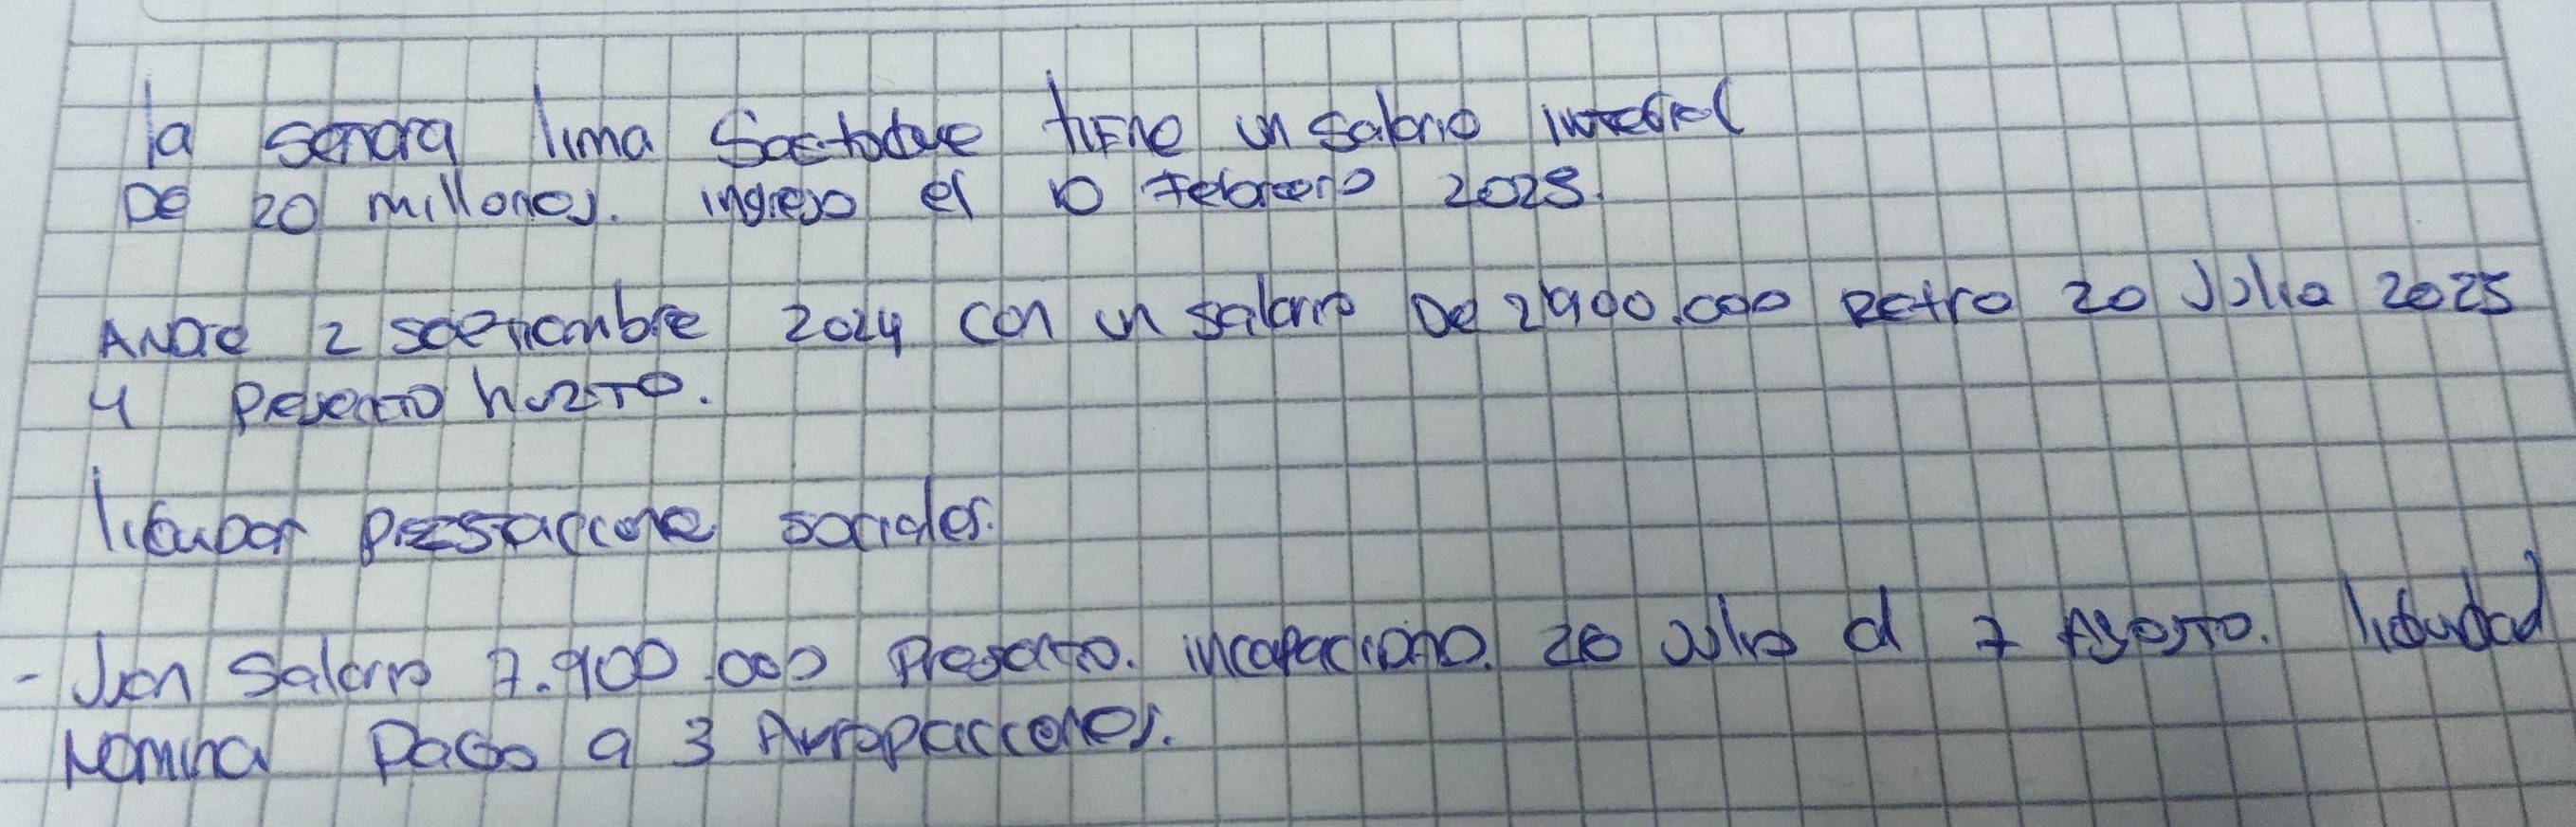 la senora lima tiene un salario
De 20 millones. ingreso el 10 Febrero 2025.
Andre 2 septiembre 2024 con un salario De 2'900.000 Retiro 20 Julio 2025
y Presento hurto.
liquidar prestaciones sociales.
- Juan Salario 7.900.000 Presento. incapacidad. 20 Julio al 7 Agosto.
Nomina Pago a 3